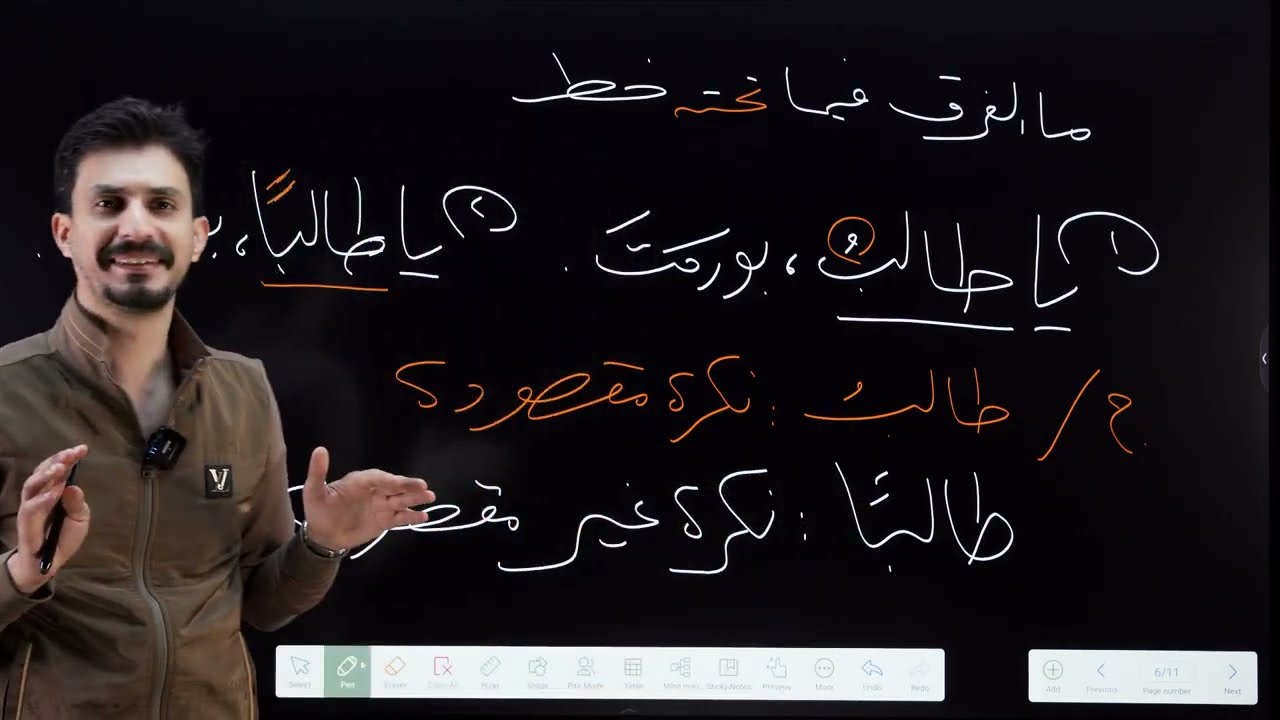 ما الفرق فيما تحته خط
١) يا طالبُ، بوركتَ. ٢) يا طالبًا،
ج/ طالبُ : نكرة مقصودة
طالبًا : نكرة غير
VJ
Select Pen Eraser Clean All Ruler Shape Pair Mode Timer Mind map StickyNotes Preview More Undo Redo
Add Previous 6/11 Page number Next